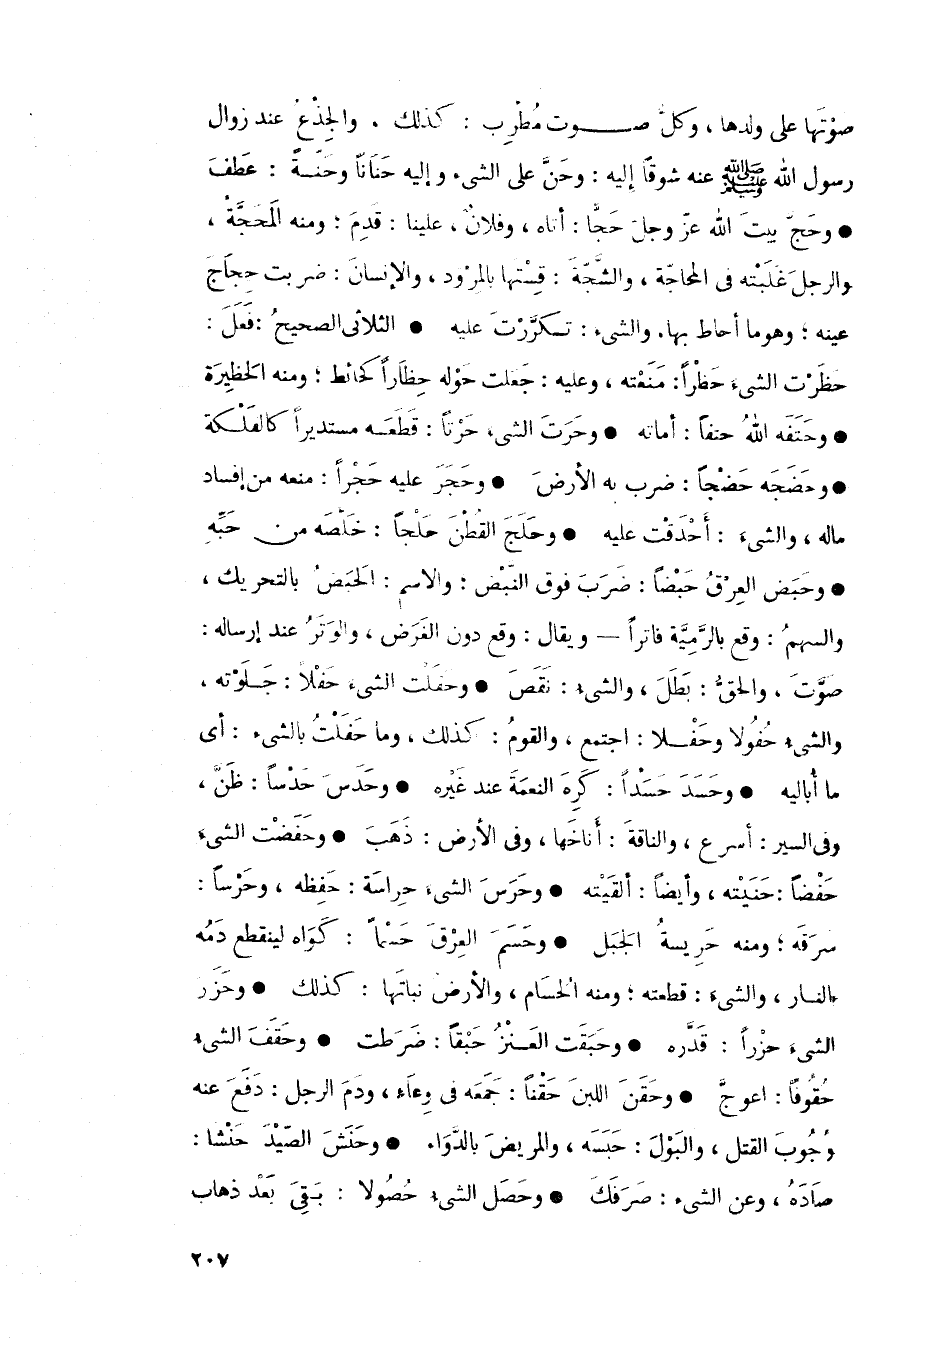 صوْتَها على ولدها ، وكلُّ صـــــوت مُطْرِب : كذلك . والجِذْعُ عند زوال
رسول الله ﷺ عنه شوقًا إليه : وحَنَّ على الشىء وإليه حَنَانًا وحَنَّــةً : عَطفَ
● وحَجَّ بيتَ الله عزّ وجلَ حَجًّا : أتاه ، وفلانٌ ، علينا : قَدِمَ ؛ ومنه الْمَحَجَّةُ ،
والرجلَ غَلَبْته فى المحاجّة ، والشَّجّةَ : قِسْتها بالمِرْود ، والإنسانَ : ضربت حِجَاجَ
عينه ؛ وهو ما أحاط بها. والشىء : تـكرَّرْتَ عليه ● الثلاثى الصحيحُ : فَعَلَ :
حظَرْت الشىءَ حَظْراً : مَنَعْته ، وعليه : جَعَلت حَوْله حِظَاراً كحائط ؛ ومنه الحَظِيرَة
● وحَتَفَه اللهُ حتفاً : أماته ● وحَرَتَ الشىء حَرْتاً : قَطَعَــه مستديراً كالفَلْـكة
● وحَضَجَه حَضْجاً : ضرب به الأرضَ ● وحَجَرَ عليه حَجْراً : منعه من إفساد
ماله ، والشىءَ : أَحْدَقْت عليه ● وحَلَجَ القُطْنَ حَلْجاً : خَلّصَه من حَبِّهِ
● وحَبَض العِرْقُ حَبْضاً : ضَرَبَ فوق النَّبْض ؛ والاسم : الحَبَضُ بالتحريك ،
والسهمُ : وقع بالرَّمِيَّة فاتراً — ويقال : وقع دون الغَرَض ، والوَتَرُ عند إرساله :
صَوَّتَ ، والحقُّ : بَطَلَ ، والشىءُ : نَقَصَ ● وحفَلْت الشىءَ حَفْلاً : جَــلَوْته ،
والشىءُ حُفُولا وحَفْــلا : اجتمع ، والقومُ : كذلك ، وما حَفَلْتُ بالشىء : أى
ما أباليه ● وحَسَدَ حَسَدْاً : كَرِهَ النعمَةَ عند غَيْره ● وحَدَسَ حَدْساً : ظَنَّ ،
وفى السير : أسرع ، والناقةَ : أناخَها ، وفى الأرض : ذَهَبَ ● وحَفَضْت الشىءَ
حَفْضاً : حَنَيْته ، وأيضاً : ألقَيْته ● وحَرَسَ الشىءَ حِراسَة : حَفِظه ، وحَرْساً :
سرَقَه ؛ ومنه حَرِيسةُ الجَبَل ● وحَسَمَ العِرْقَ حَسْماً : كَوَاه لينقطع دَمُه
بالنــار ، والشىءَ : قطعته ؛ ومنه الحُسَام ، والأرضُ نباتَها : كذلك ● وحَزَر
الشىءَ حزْراً : قَدَّره ● وحبَقَت العَـنْزُ حَبْقاً : ضَرَطت ● وحَقَفَ الشىءُ
حُقُوفًا : اعوجَّ ● وحَقَنَ اللبنَ حَقْناً : جَمَعَه فى وِعَاء ، ودَمَ الرجل : دَفَعَ عنه
وُجُوبَ القتل ، والبَوْلَ : حَبَسَه ، والمريضَ بالدَّوَاء ● وحَنَشَ الصّيْدَ حَنْشا :
صَادَهُ ، وعن الشىء : صَرَفَكَ ● وحَصَل الشىءُ حُصُولا : بَـقِىَ بَعْد ذهاب
٢٠٧